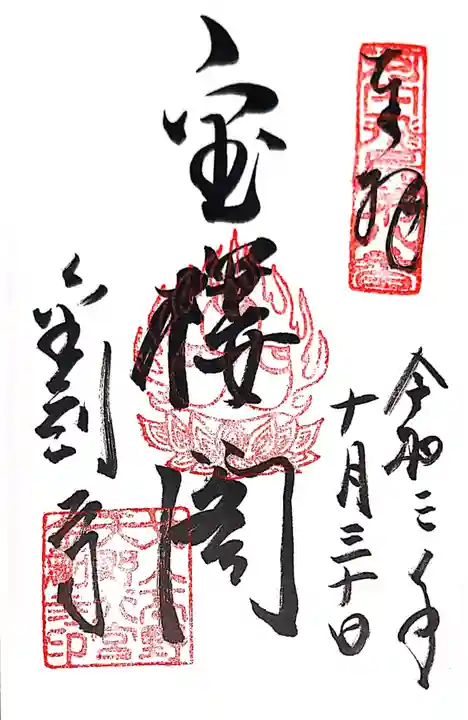 奉拝
令和二年
十月三十日
宝楼閣
金剛寺